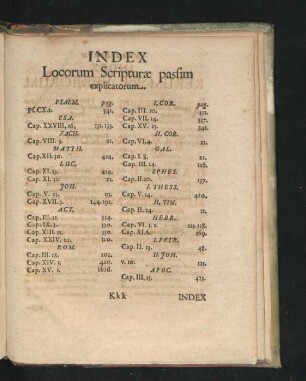 INDEX
Locorum Scripturæ passim
explicatorum.
PSALM. pag.
Pf.CX.1. 341.
ESA.
Cap. XXVIII, 16, 131.133.
ZACH.
Cap. VIII. 21.
MATTH.
Cap. XII. 30. 424.
LUC.
Cap. XI. 23. 424.
Cap. XI. 21.
JOH.
Cap. V. 93.
Cap. XVII. 3. 144.192.
ACT.
Cap. 334.
Cap. IX. 3. 330.
Cap. XIII. 330.
Cap. XXIV. 110.
ROM.
Cap. III. 28. 104.
Cap. XIV. 1. 420.
Cap. XV. 1. ibid.
I. COR. pag.
Cap. III. 10. 131.
Cap. VII. 14. 357.
Cap. XV. 341.
II. COR.
Cap. VI. 4. 22.
GAL.
Cap. I. 8. 21.
Cap. III. 24. 116.
EPHES.
Cap. II. 20. 137.
I. THESS.
Cap. V. 14. 420.
II. TIM.
Cap. II. 24. 21.
HEBR.
Cap. VI. 1. 2. 113.118.
Cap. XI. 6. 169.
I. PETR.
Cap. II. 13. 48.
II. JOH.
v. 10. 221.
APOC.
Cap. III. 15. 423.
Kkk INDEX